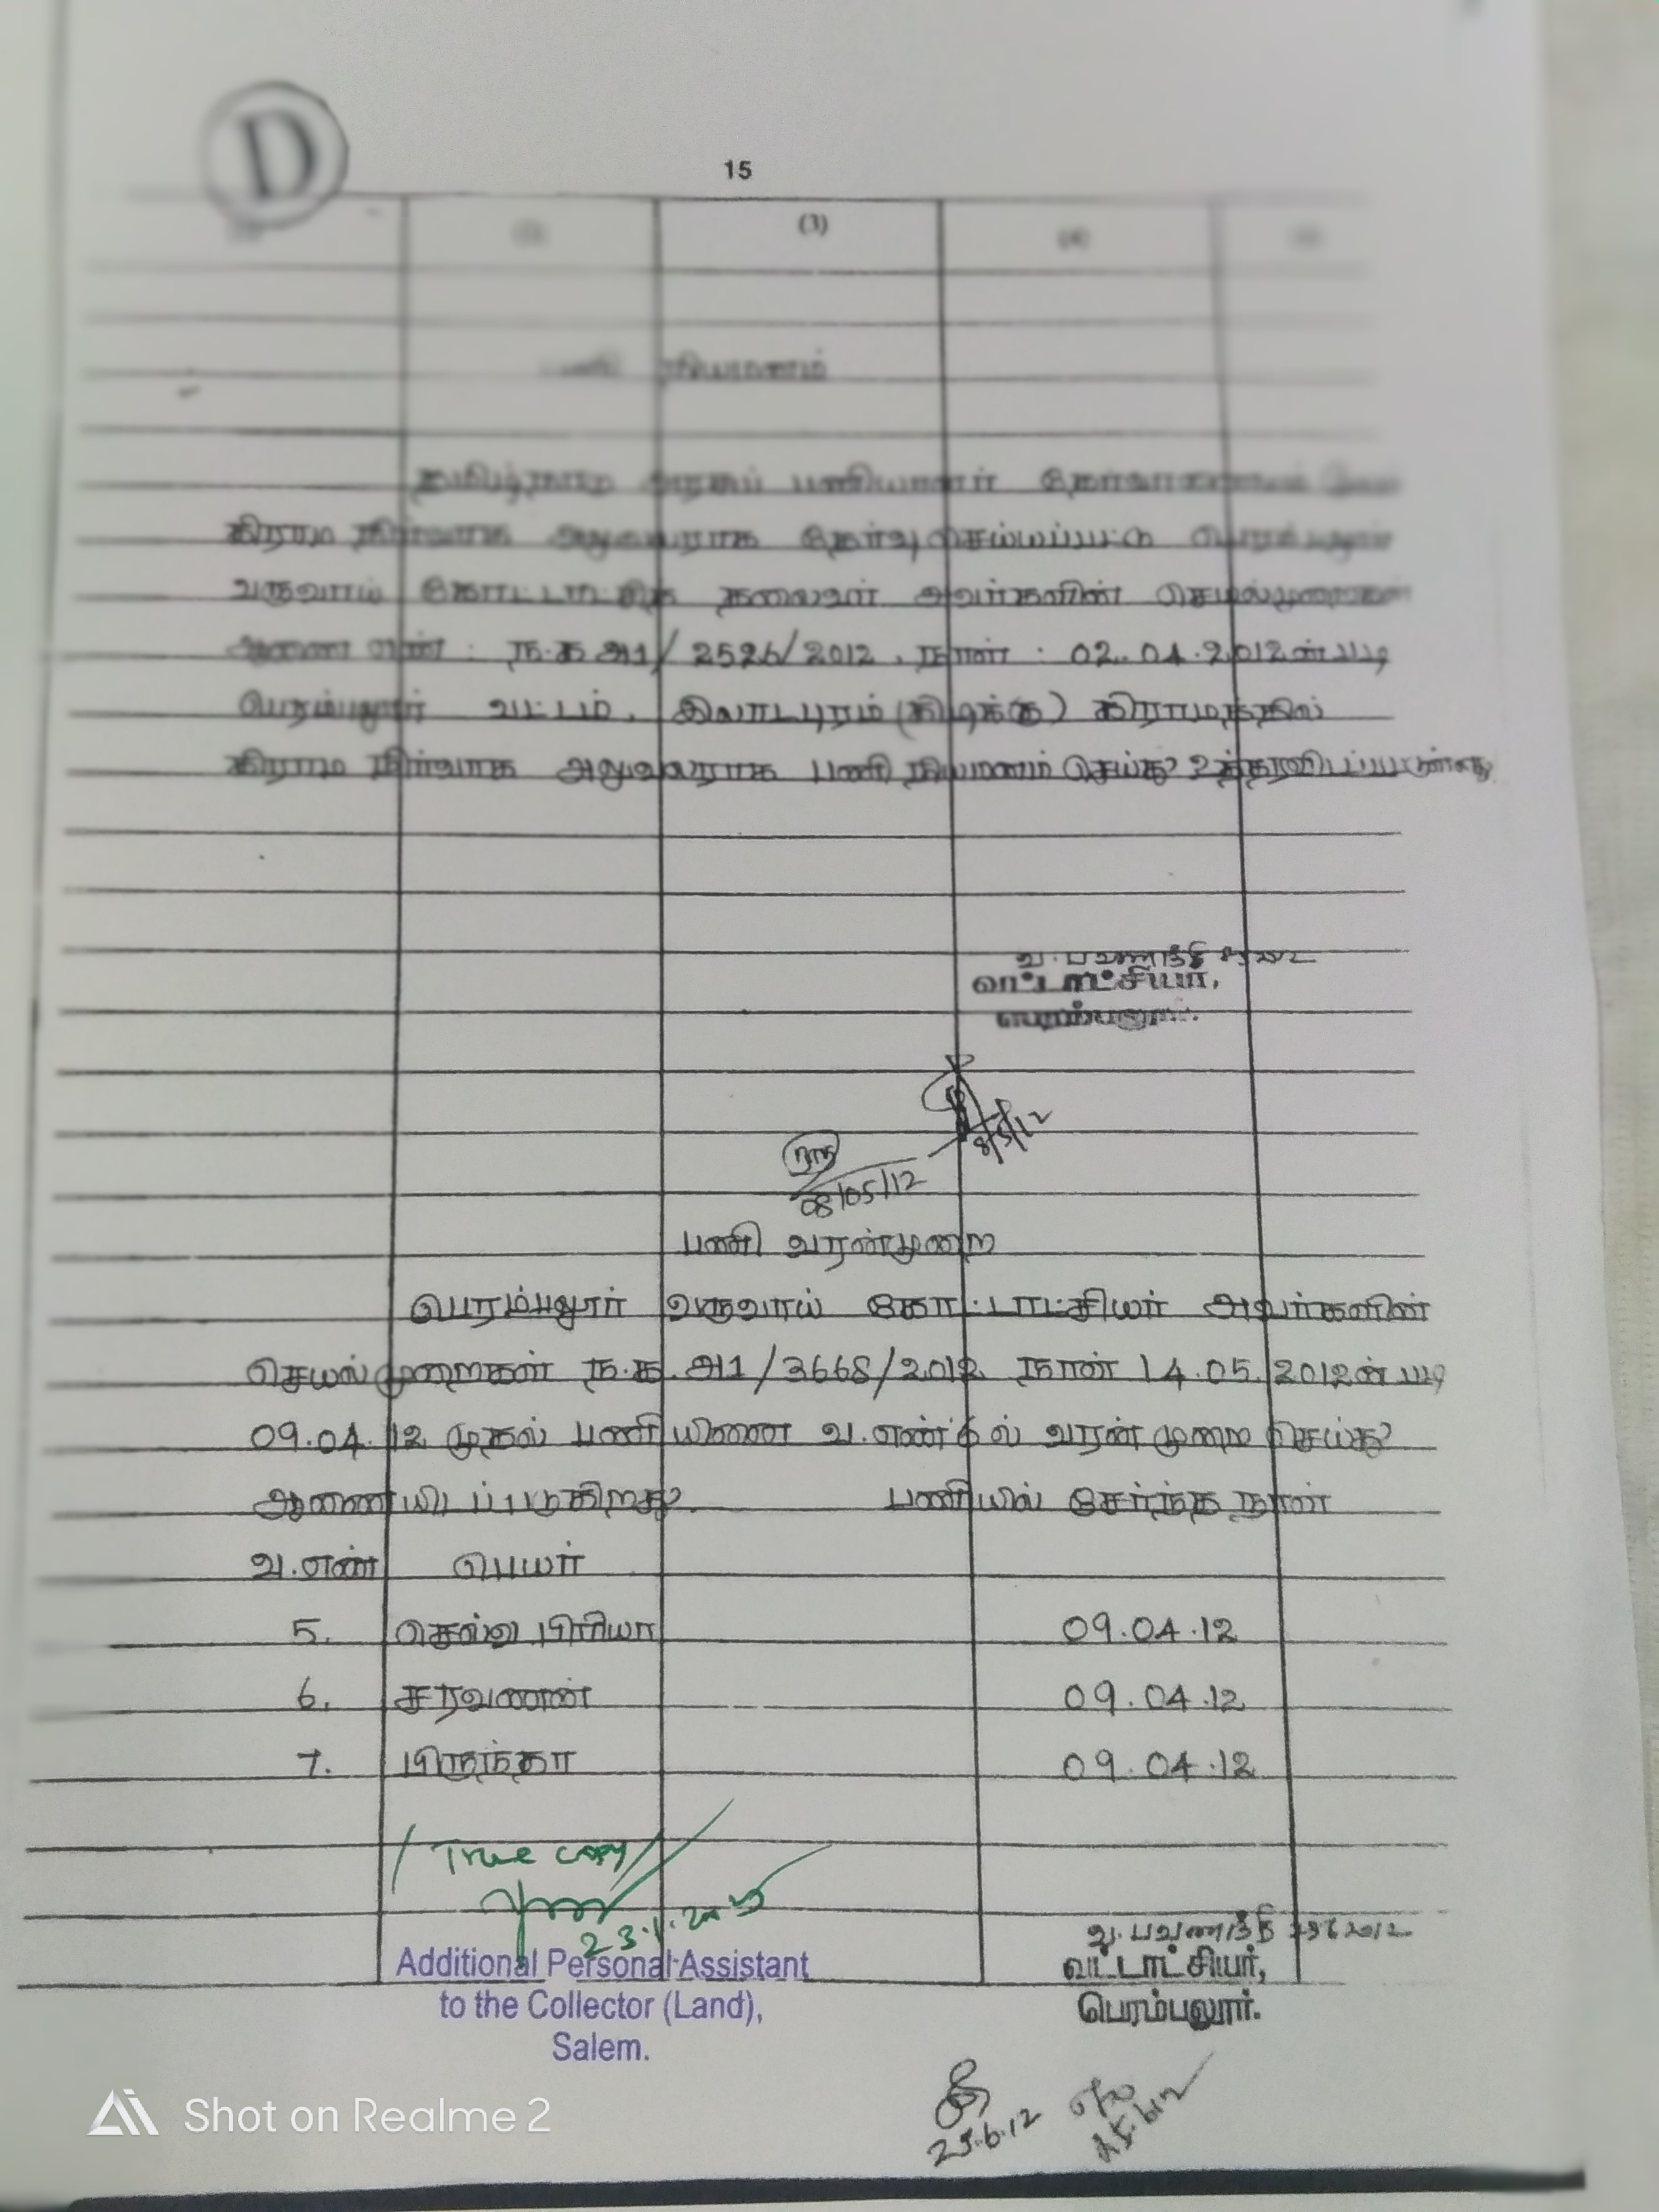 D
15
(3)
(4)
பணி நியமனம்
தமிழ்நாடு அரசுப் பணியாளர்
கிராம நிர்வாக அலுவலராக தேர்வு செய்யப்பட்டு பெரம்பலூர்
வருவாய் கோட்டாட்சித் தலைவர் அவர்களின் செயல்முறைகள்
ஆணை எண் : ந.க அ1/2526/2012, நாள் : 02.04.2012ன் படி
பெரம்பலூர் வட்டம், இலாடபுரம் (கிழக்கு) கிராமத்தில்
கிராம நிர்வாக அலுவலராக பணி நியமனம் செய்து உத்தரவிடப்பட்டுள்ளது
வட்டாட்சியர்,
பெரம்பலூர்.
8/5/12
08/05/12
பணி வரன்முறை
பெரம்பலூர் வருவாய் கோட்டாட்சியர் அவர்களின்
செயல்முறைகள் ந.க. அ1/3668/2012 நாள் 14.05.2012ன் படி
09.04.12 முதல் பணியினை வ.எண் 6 ல் வரன்முறை செய்து
ஆணையிடப்படுகிறது. பணியில் சேர்ந்த நாள்
வ.எண் பெயர்
5. செல்வ பிரியா 09.04.12
6. சரவணன் 09.04.12
7. பிருந்தா 09.04.12
/True copy/
Additional Personal Assistant
to the Collector (Land),
Salem.
வட்டாட்சியர்,
பெரம்பலூர்.
25.6.12
Shot on Realme 2